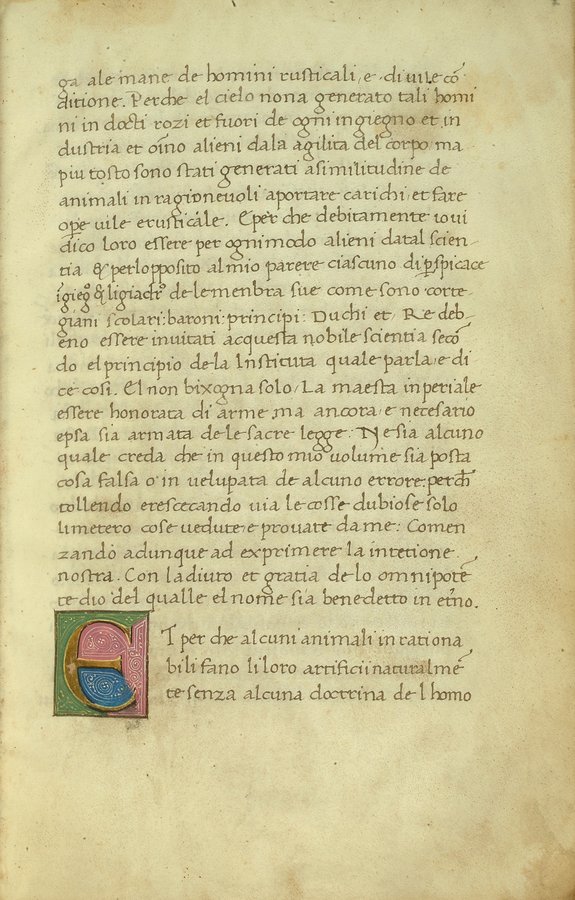 ga ale mane de homini rusticali, e di vile cō
ditione. Perche el cielo nona generato tali homi
ni in docti rozi et fuori de ogni ingiegno et in
dustria et oīno alieni dala agilita del corpo ma
piu tosto sono stati generati a similitudine de
animali in ragionevoli aportare carichi, et fare
ope vile e rusticale. E per che debitamente io vi
dico loro essere per ognimodo alieni da tal scien
tia & perlopposito al mio parere ciascuno di pspicace
de le menbra sue come sono corte
giani scolari: baroni: principi: Duchi et Re deb
eno essere invitati acquesta nobile scientia secō
do el principio de la Instituta quale parla e di
ce cosi. El non bixogna solo, La maesta inperiale
essere honorata di arme, ma ancora e necesario
epsa sia armata de le sacre legge. Ne sia alcuno
quale creda che in questo mio volume sia posta
cosa falsa o in velupata de alcuno errore: perch
tollendo e rescecando via le cosse dubiose solo
li metero cose vedute e provate da me: Comen
zando adunque ad exprimere la intētione
nostra. Con la diuto et gratia de lo omnipotē
te dio del qualle el nome sia benedetto in etno.
ET per che alcuni animali in rationa
bili fano li loro artificii naturalmē
te senza alcuna doctrina de l homo